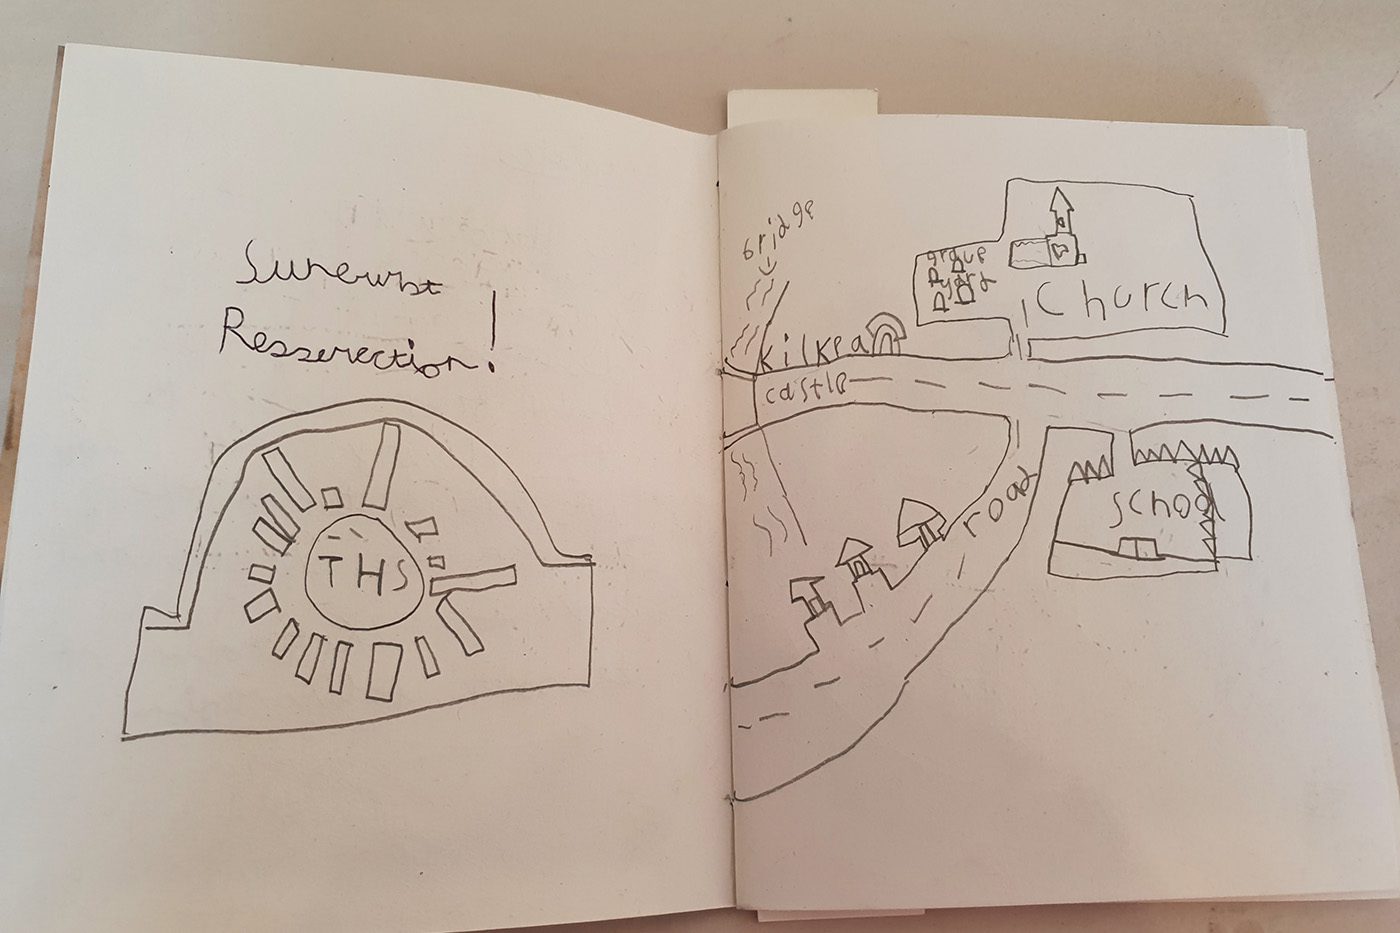 Sunburst
Resserection!
THS
bridge
grave
yard
Church
Kilkea
castle
road
school